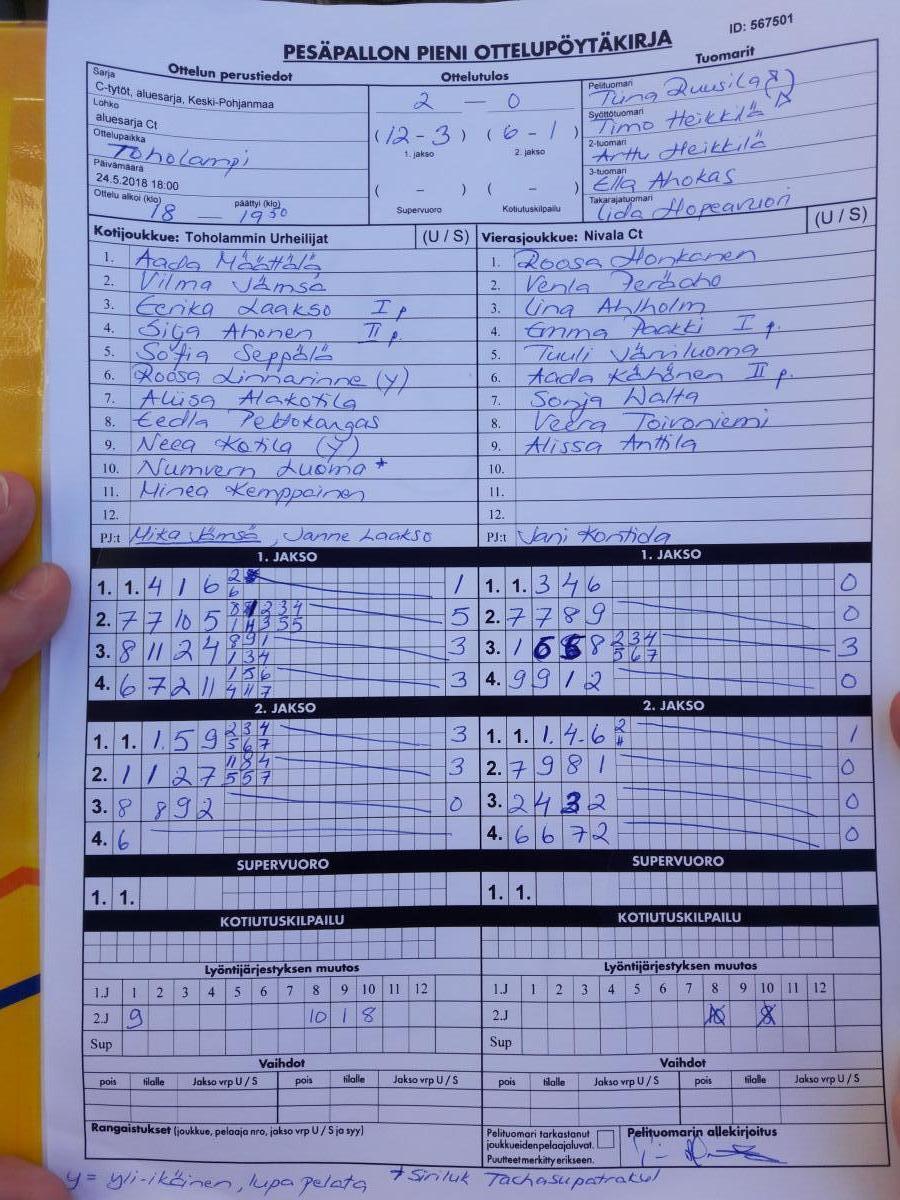 ID: 567501
PESÄPALLON PIENI OTTELUPÖYTÄKIRJA
Ottelun perustiedot
Sarja
C-tytöt, aluesarja, Keski-Pohjanmaa
Lohko
aluesarja Ct
Ottelupaikka
Toholampi
Päivämäärä
24.5.2018 18:00
Ottelu alkoi (klo) päättyi (klo)
18 — 19 50
Ottelutulos
2 — 0
(12 - 3) (6 - 1)
1. jakso 2. jakso
( - ) ( - )
Supervuoro Kotiutuskilpailu
Tuomarit
Pelituomari
Tiina Ruusila
Syöttötuomari
Timo Heikkilä
2-tuomari
Arttu Heikkilä
3-tuomari
Ella Ahokas
Takarajatuomari
Iida Hopeavuori
Kotijoukkue: Toholammin Urheilijat (U / S)
1. Aada Määttälä
2. Vilma Jämsä
3. Eerika Laakso I p
4. Silja Ahonen II p.
5. Sofia Seppälä
6. Roosa Linnarinne (y)
7. Aliisa Alakotila
8. Eedla Peltokangas
9. Neea Kotila (y)
10. Luoma *
11. Minea Kemppainen
12.
PJ:t Mika Jämsä, Janne Laakso
Vierasjoukkue: Nivala Ct (U / S)
1. Roosa Honkanen
2. Venla Peräaho
3. Iina Ahlholm
4. Emma Paakki I p.
5. Tuuli Järviluoma
6. Aada Kähönen II p.
7. Sonja Walta
8. Veera Toivoniemi
9. Alissa Anttila
10.
11.
12.
PJ:t Jani Kontiola
1. JAKSO
1. 1. 4 1 6 2 6 1
2. 7 7 10 5 5
3. 8 11 2 4 8 9 1 1 3 4 3
4. 6 7 2 11 1 5 6 4 11 7 3
1. JAKSO
1. 1. 3 4 6 0
2. 7 7 8 9 0
3. 1 6 8 2 3 4 5 6 7 3
4. 9 9 1 2 0
2. JAKSO
1. 1. 1. 5 9 2 3 4 5 6 7 3
2. 1 1 2 7 11 8 4 5 5 7 3
3. 8 8 9 2 0
4. 6
2. JAKSO
1. 1. 1. 4. 6 2 4 1
2. 7 9 8 1 0
3. 2 4 3 2 0
4. 6 6 7 2 0
SUPERVUORO
1. 1.
SUPERVUORO
1. 1.
KOTIUTUSKILPAILU
KOTIUTUSKILPAILU
Lyöntijärjestyksen muutos
1.J 1 2 3 4 5 6 7 8 9 10 11 12
2.J 9 10 1 8
Sup
Lyöntijärjestyksen muutos
1.J 1 2 3 4 5 6 7 8 9 10 11 12
2.J 10 8
Sup
Vaihdot
pois tilalle Jakso vrp U / S pois tilalle Jakso vrp U / S
Vaihdot
pois tilalle Jakso vrp U / S pois tilalle Jakso vrp U / S
Rangaistukset (joukkue, pelaaja nro, jakso vrp U / S ja syy)
Pelituomari tarkastanut
joukkueiden pelaajaluvat.
Puutteet merkitty erikseen.
Pelituomarin allekirjoitus
y = yli-ikäinen, lupa pelata * Siriluk Tachasupatrakul